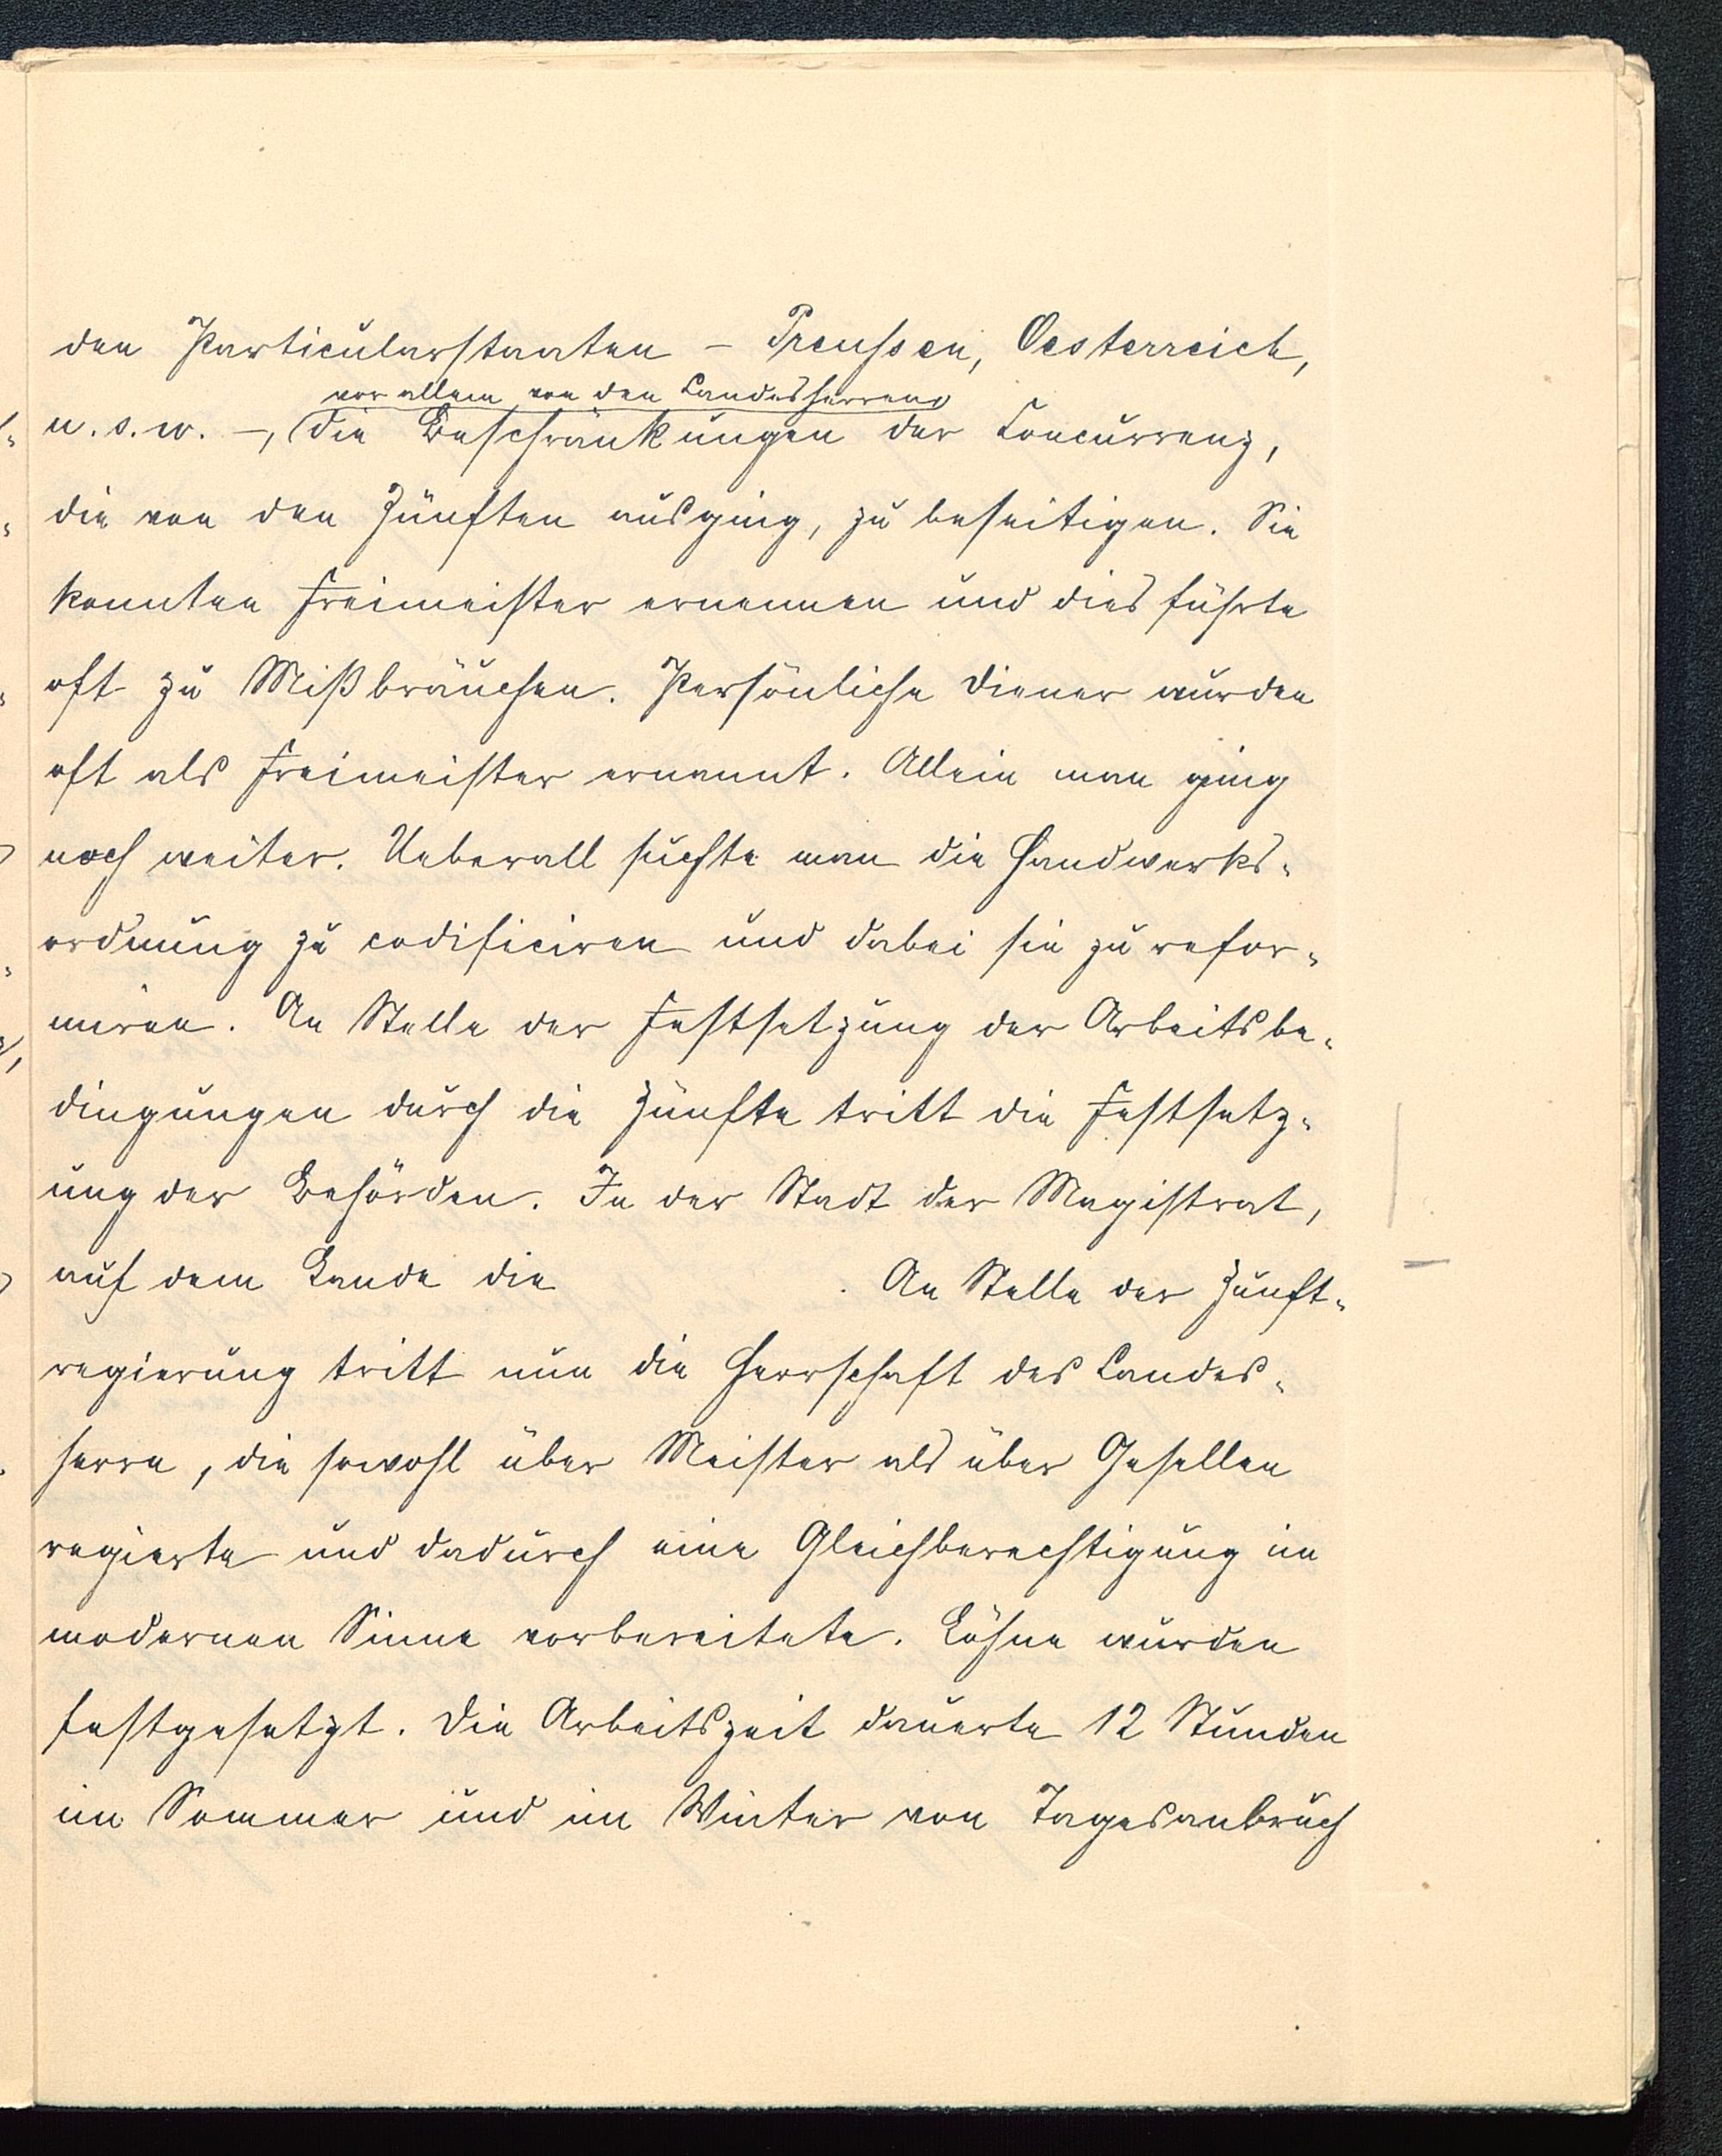 den Particularstaaten – Preußen, Oesterreich,
vor allem von den Landesherren
u. s. w. –, die Beschränkungen der Concurrenz,
die von den Zünften ausging, zu beseitigen. Sie
konnten Freimeister ernennen und dies führte
oft zu Mißbräuchen. Persönliche Diener wurden
oft als Freimeister ernannt. Allein man ging
noch weiter. Ueberall suchte man die Handwerks-
ordnung zu codificiren und dabei sie zu refor-
miren. An Stelle der Festsetzung der Arbeitsbe-
dingungen durch die Zünfte tritt die Festsetz-
ung der Behörden. In der Stadt der Magistrat,
auf dem Lande die . An Stelle der Zunft-
regierung tritt nun die Herrschaft des Landes-
herrn, die sowohl über Meister als über Gesellen
regierte und dadurch eine Gleichberechtigung im
modernen Sinne vorbereitete. Löhne wurden
festgesetzt. Die Arbeitszeit dauerte 12 Stunden
im Sommer und im Winter von Tagesanbruch